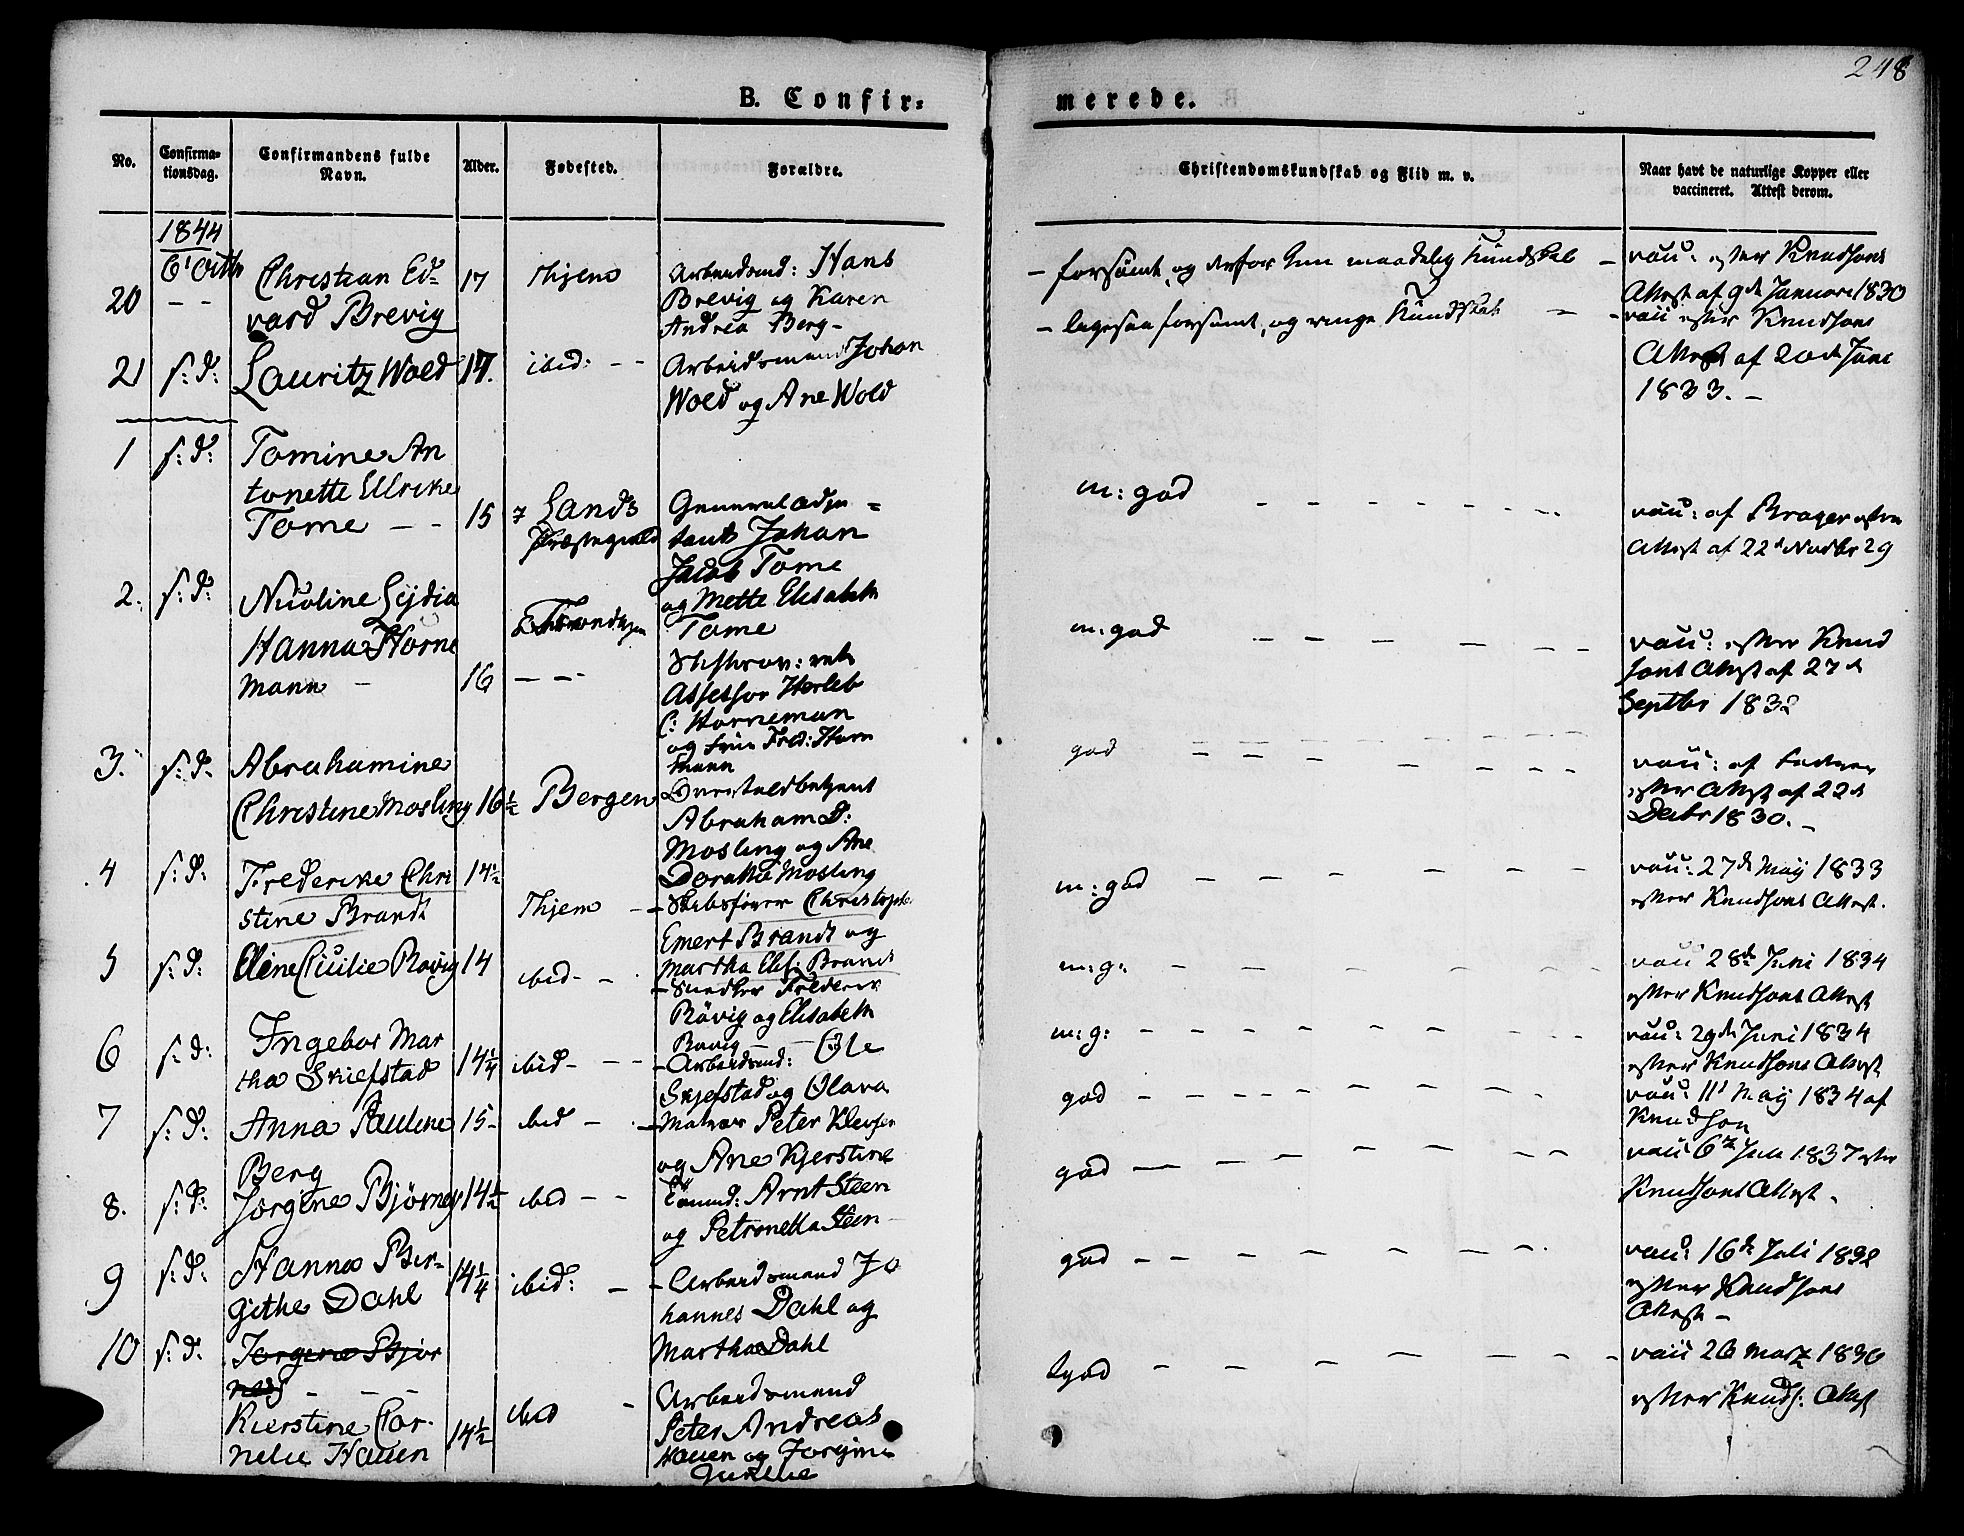 248
B. Confir=
merede.
No.
Confirma=
tionsdag.
Confirmandens fulde
Navn.
Alder.
Fødested.
Forældre.
Christendomskundskab og Flid m. v.
Naar havt de naturlige Kopper eller
vaccineret. Attest derom.
1844
6'
20
— —
Christian Ed=
vard Brevig
17
Thjem
Arbeidsmd: Hans
Brevig og Karen
Andrea Berg-
- forsømt, og derfor kun maadelig Kundskab -
vacc: efter Knudsons
Attest af 9de Januar 1830
21
s: d:
Lauritz Wold
17.
ibid: - -
Arbeidsmand Johan
Wold og Ane Wold
- ligesaa forsømt, og ringe Kundskab - -
vacc efter Knudsons
Attest af 20de Juni
1833. -
1
s: d:
Tomine An
tonette Ulrike
Tome - -
15
Lands
Præstegield
General adju =
tant Johan
Jacob Tome
og Mette Elisabeth
Tome
m: god - - - - - - -
vacc: af
Attest af 22d Novbr 29
2.
s: d:
Nicoline Lydia
Hanna Horne
mann -
16
- -
Assessor Herleb
C: Horneman
og Fred: Horn
mann
m: god - - - - - -
vacc: efter Knud
sons Attest af 27de
Septbr 1832
3.
s: d.
Abrahamine
Christine Mosling
16½
Bergen
Abraham D:
Mosling og Ane
Dorothea Mosling
god - - - - - -
vacc: af
efter Attest af 22de
Decbr 1830. -
4
s: d:
Frederike Chri
stine Brandt
14½
Thjem -
- Skibsfører Christoph.
Emert Brandt og
Martha Elis: Brandt
m: god - - - - - -
vacc: 27de May 1833
efter Knudsons Attest.
5
s: d:
Eline Cicilie Røvig
14
ibid - -
- Snedker Frederik
Røvig og Elisabeth
Røvig -
m: g: - - - - - -
vacc 28de Juni 1834
efter Knudsons Attest
6
s: d:
Ingebor Mar
tha Skiefstad
14¼
ibid - - -
- Arbeidsmd: Ole
Skjefstad og Olava
m: g: - - - - - -
vacc: 29de Juni 1834
efter Knudsons Attest
7
s: d:
Anna Pauline
Berg
15-
ibid - -
- Peter
og Ane Kjerstine
god - - - - - -
vacc: 11' May 1834 af
Knudson
8.
s: d:
Jørgine Bjørney
14½
ibid - -
Arnt Steen
og Petronella Steen
god - - - - - -
vacc 6te 1837 efter
Knudsons Attest.
9
s: d:
Hanna Bir-
githe Dahl
14¼
ibid: -
- Arbeidsmand Jo
hannes Dahl og
Martha Dahl
god - - - - - -
vacc: 16de Juli 1832
efter Knudsons
Attest -
10
s: d.
Jørgine Bjør
ney - - -
Kierstine Cor-
nelie Hauen
14½
ibid -
Arbeidsmand
Peter Andreas
Hauen og Jorgine
god - - - - - -
vacc 26 Marz 1836
efter Knuds: Attest